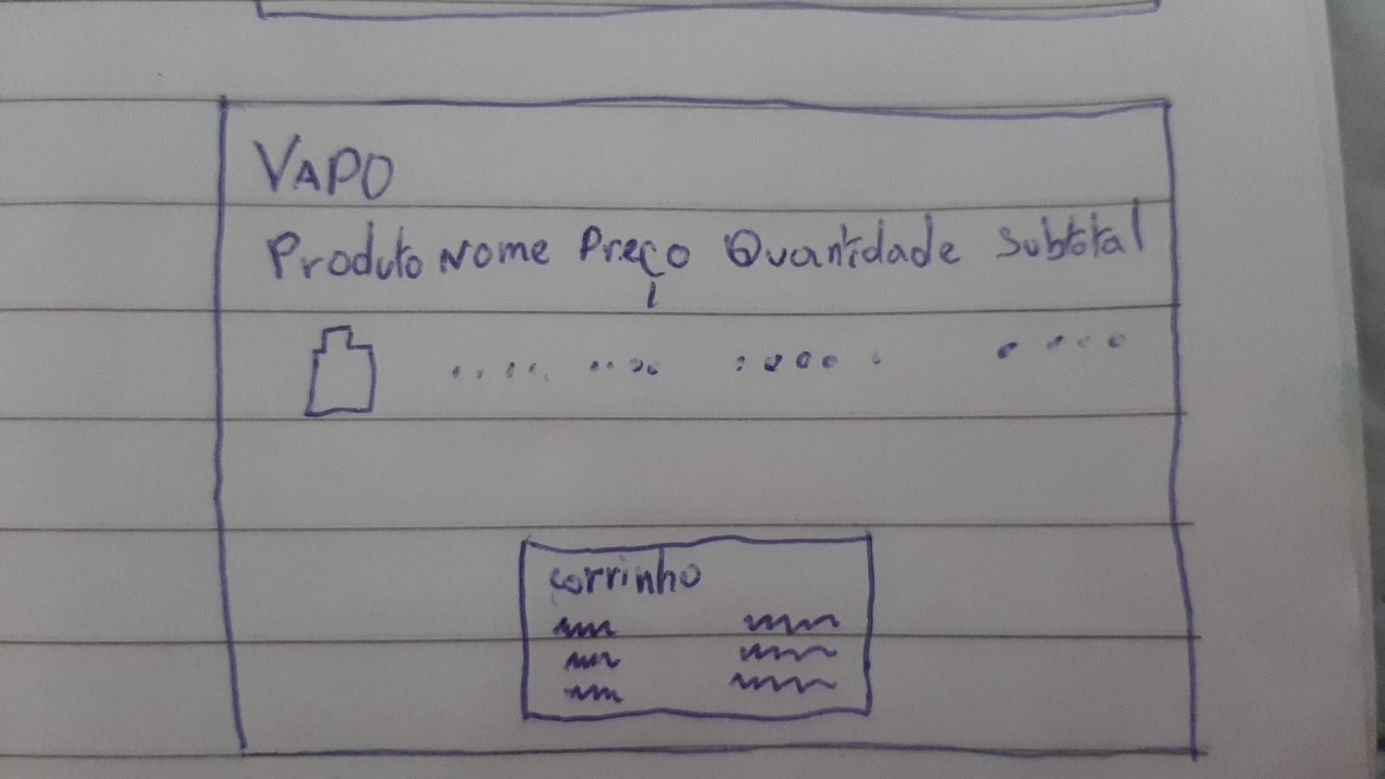 VAPO
Produto Nome Preço Quantidade Subtotal
carrinho